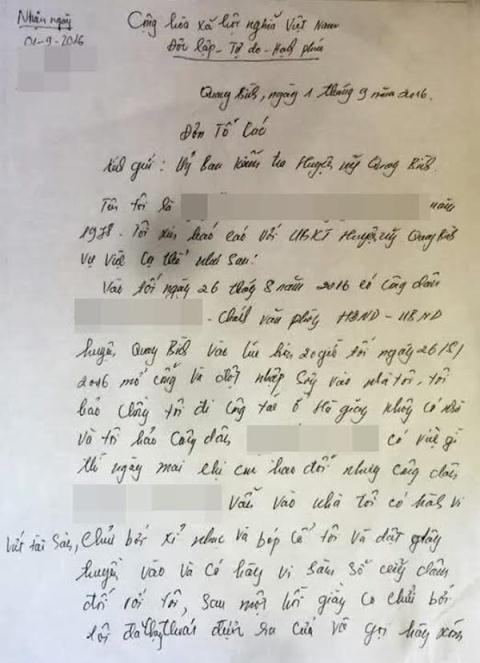 Nhận ngày
01-9-2016
Cộng hòa xã hội nghĩa Việt Nam
Độc lập - Tự do - Hạnh phúc
Quang Bình, ngày 1 tháng 9 năm 2016.
Đơn Tố Cáo
Kính gửi: Uỷ ban kiểm tra Huyện uỷ Quang Bình.
Tên tôi là năm
1978. Tôi xin báo cáo với UBKT Huyện uỷ Quang Bình
vụ việc cụ thể như sau:
Vào tối ngày 26 tháng 8 năm 2016 có công dân
- Chánh văn phòng HĐND - UBND
huyện Quang Bình vào lúc 20 giờ tối ngày 26/8/
2016 mở cổng và đột nhập vào nhà tôi, tôi
bảo chồng tôi đi công tác ở Hà giang không có nhà
và tôi bảo công dân có việc gì
thì ngày mai chị em trao đổi nhưng công dân
vẫn vào nhà tôi có hành vi
vứt tài sản, chửi bới xỉ nhục và bóp cổ tôi và dắt giây
huyện vào và có hành vi sàm sỡ cưỡng dâm
đối với tôi, sau một hồi giằng co chửi bới
tôi đã chạy thoát được ra cửa và gọi hàng xóm